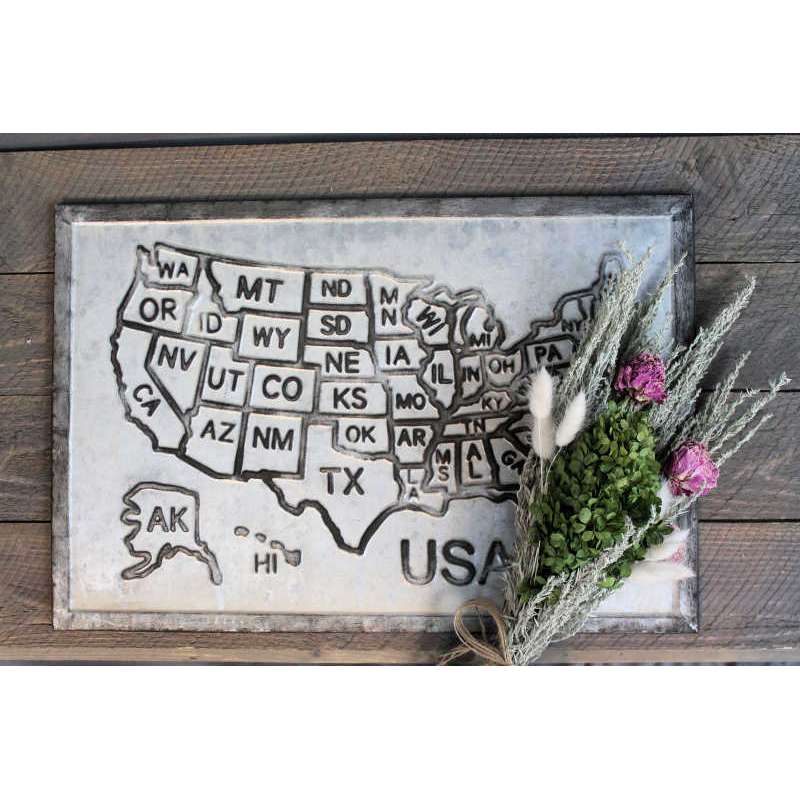 WA
MT
ND
MN
OR
ID
WY
SD
WI
MI
NY
NV
UT
CO
NE
IA
IL
IN
OH
PA
CA
KS
MO
KY
AZ
NM
OK
AR
TN
TX
LA
MS
AL
GA
AK
HI
USA